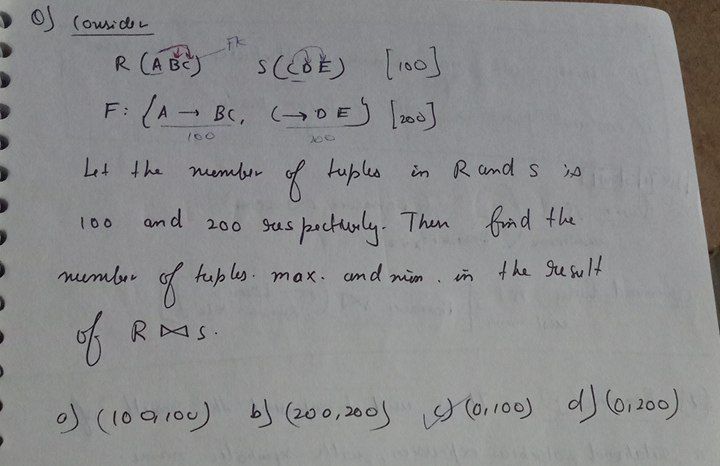 Q) Consider
R (A B C) FK S (C D E) [100]
F: {A → BC, C → D E} [200]
100 200
Let the number of tuples in R and S is
100 and 200 respectively. Then find the
number of tuples. max. and min. in the result
of R ⋈ S.
a) (100,100) b) (200,200) c) (0,100) d) (0,200)